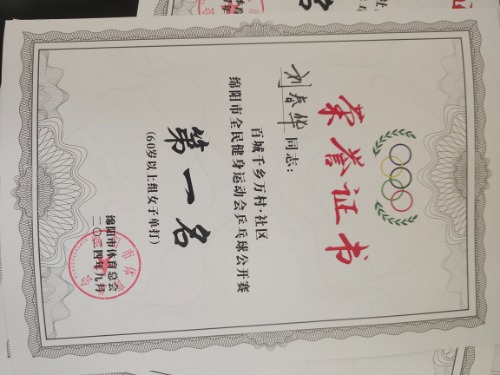 荣誉证书
刘春华 同志：
百城千乡万村·社区
绵阳市全民健身运动会乒乓球公开赛
第一名
(60岁以上组女子单打)
绵阳市体育总会
二〇二四年九月